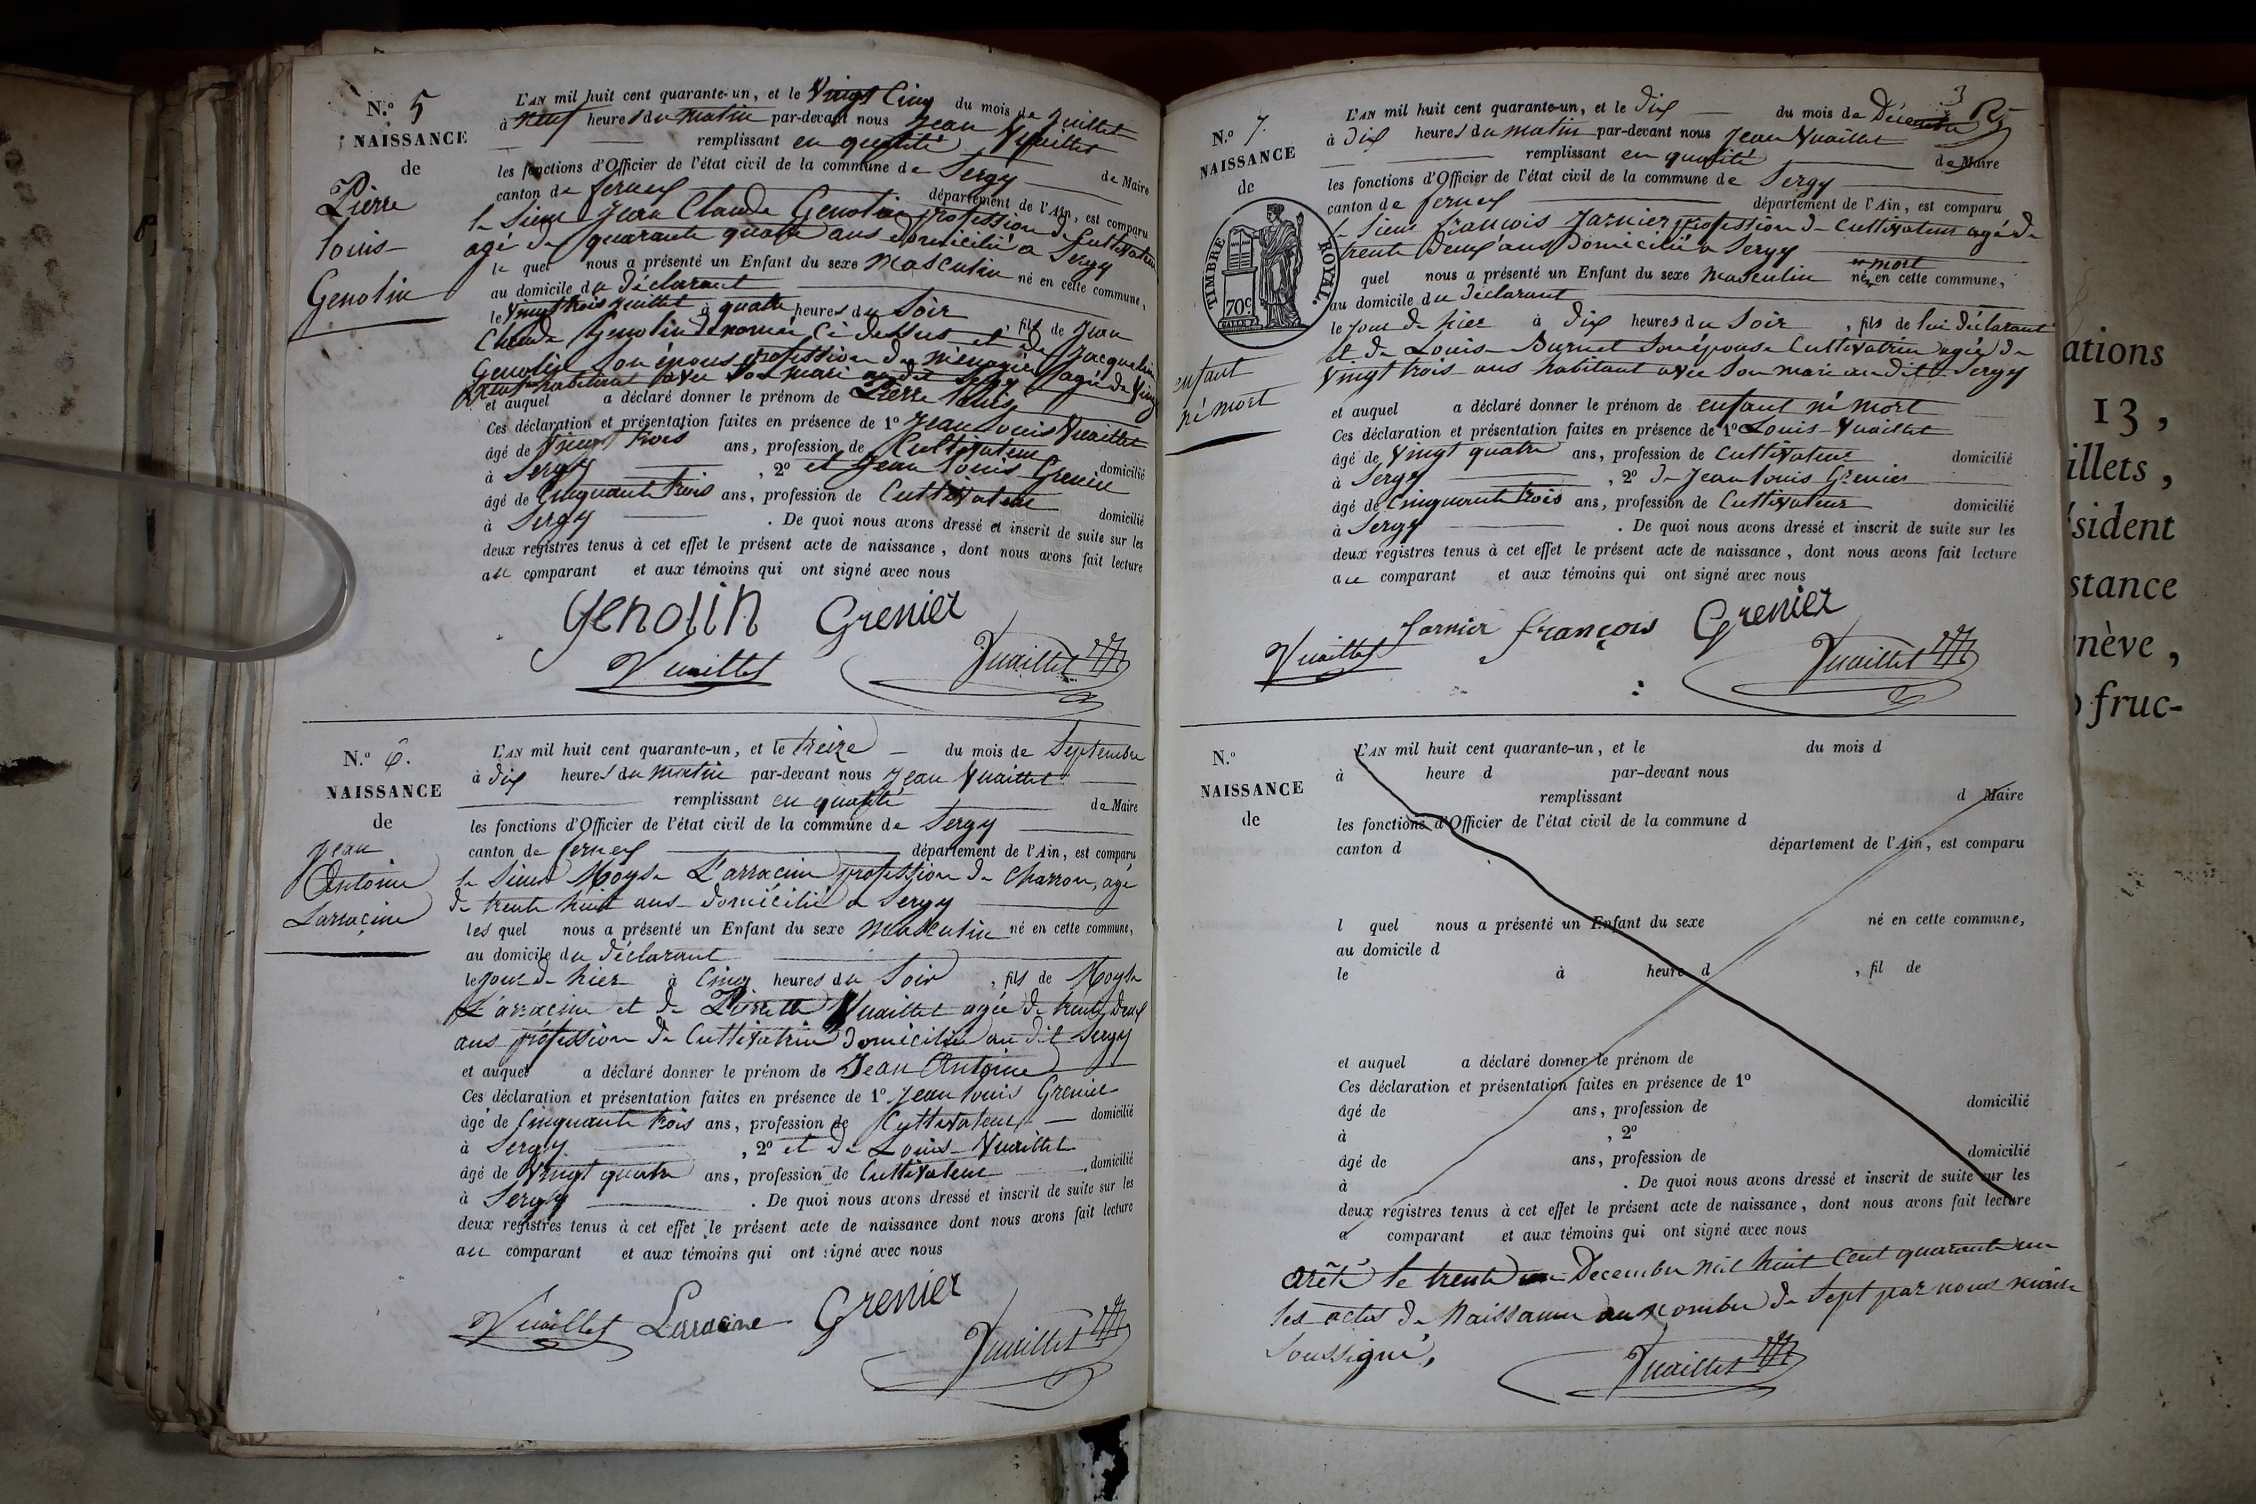 N.º 5
NAISSANCE
de
Pierre
Louis
Genolin
L'AN mil huit cent quarante-un, et le Vingt Cinq du mois de Juillet
à neuf heures du matin par-devant nous Jean Vuaillet
remplissant en qualité de Maire
les fonctions d'Officier de l'état civil de la commune de Sergy
canton de ferney département de l'Ain, est comparu
le Sieur Jean Claude Genolin profession de Cultivateur
agé de quarante quatre ans domicilié a Sergy
le quel nous a présenté un Enfant du sexe masculin né en cette commune,
au domicile du déclarant
le Vingt trois Juillet à quatre heures du Soir, fils de Jean
Claude Genolin dénommé Ci dessus et de Jacqueline
Genolin Son épouse profession de ménagère agée de Vingt
ans habitant avec Son mari au dit Sergy
et auquel a déclaré donner le prénom de Pierre Louis
Ces déclaration et présentation faites en présence de 1º Jean Louis Vuaillet
âgé de Vingt trois ans, profession de Cultivateur domicilié
à Sergy, 2º et Jean Louis Grenier
âgé de Cinquante trois ans, profession de Cultivateur domicilié
à Sergy. De quoi nous avons dressé et inscrit de suite sur les
deux registres tenus à cet effet le présent acte de naissance, dont nous avons fait lecture
au comparant et aux témoins qui ont signé avec nous
Genolin Grenier
Vuaillet Vuaillet
N.º 6.
NAISSANCE
de
Jean
Antoine
Larracine
L'AN mil huit cent quarante-un, et le treize du mois de Septembre
à dix heures du matin par-devant nous Jean Vuaillet
remplissant en qualité de Maire
les fonctions d'Officier de l'état civil de la commune de Sergy
canton de ferney département de l'Ain, est comparu
le Sieur Moyse L'arracine profession de Charron, agé
de trente huit ans domicilié a Sergy
les quel nous a présenté un Enfant du sexe masculin né en cette commune,
au domicile du déclarant
le jour de hier à Cinq heures du Soir, fils de Moyse
L'arracine et de Pierrette Vuaillet agée de trente deux
ans profession de Cultivatrice domiciliée au dit Sergy
et auquel a déclaré donner le prénom de Jean Antoine
Ces déclaration et présentation faites en présence de 1º Jean Louis Grenier
âgé de Cinquante trois ans, profession de Cultivateur domicilié
à Sergy, 2º et de Louis Vuaillet
âgé de Vingt quatre ans, profession de Cultivateur, domicilié
à Sergy. De quoi nous avons dressé et inscrit de suite sur les
deux registres tenus à cet effet le présent acte de naissance dont nous avons fait lecture
au comparant et aux témoins qui ont signé avec nous
Vuaillet Larracine Grenier
Vuaillet
3
N.º 7.
NAISSANCE
de
TIMBRE ROYAL.
70 c.
enfant
né mort
L'AN mil huit cent quarante-un, et le dix du mois de Décembre
à dix heures du matin par-devant nous Jean Vuaillet
remplissant en qualité de Maire
les fonctions d'Officier de l'état civil de la commune de Sergy
canton de ferney département de l'Ain, est comparu
le Sieur françois Jarnier profession de Cultivateur agé de
trente deux ans domicilié a Sergy
quel nous a présenté un Enfant du sexe masculin né mort en cette commune,
au domicile du déclarant
le jour de hier à dix heures du Soir, fils de lui déclarant
et de Louise Burnet Son épouse Cultivatrice agée de
Vingt trois ans habitant avec Son mari au dit Sergy
et auquel a déclaré donner le prénom de enfant né mort
Ces déclaration et présentation faites en présence de 1º Louis Vuaillet
âgé de Vingt quatre ans, profession de Cultivateur domicilié
à Sergy, 2º de Jean Louis Grenier
âgé de Cinquante trois ans, profession de Cultivateur domicilié
à Sergy. De quoi nous avons dressé et inscrit de suite sur les
deux registres tenus à cet effet le présent acte de naissance, dont nous avons fait lecture
au comparant et aux témoins qui ont signé avec nous
Vuaillet Jarnier françois Grenier
Vuaillet
N.º
NAISSANCE
de
L'AN mil huit cent quarante-un, et le du mois d
à heure d par-devant nous
remplissant d Maire
les fonctions d'Officier de l'état civil de la commune d
canton d département de l'Ain, est comparu
l quel nous a présenté un Enfant du sexe né en cette commune,
au domicile d
le à heure d, fil de
et auquel a déclaré donner le prénom de
Ces déclaration et présentation faites en présence de 1º
âgé de ans, profession de domicilié
à, 2º
âgé de ans, profession de domicilié
à. De quoi nous avons dressé et inscrit de suite sur les
deux registres tenus à cet effet le présent acte de naissance, dont nous avons fait lecture
a comparant et aux témoins qui ont signé avec nous
arrêté le trente un Decembre mil huit Cent quarante un
les actes de Naissance au nombre de Sept par nous maire
Soussigné,
Vuaillet
ations
13,
illets,
ésident
stance
nève,
fruc-